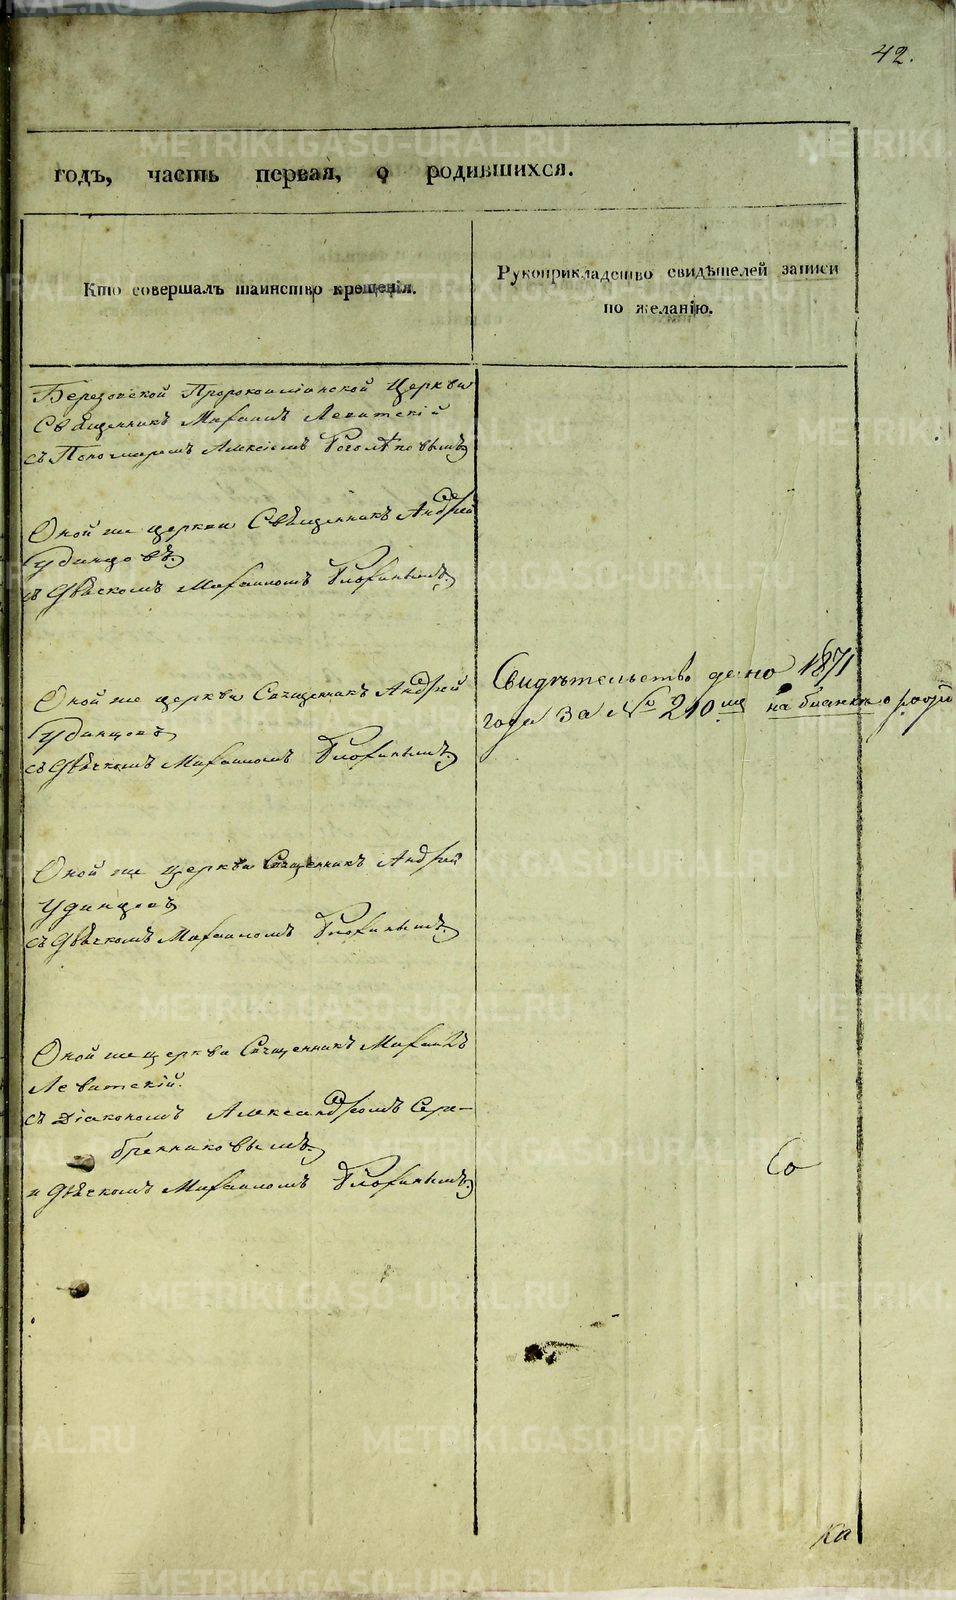 42.
годъ, часть первая, о родившихся.
Кто совершалъ таинство крещенія.
Рукоприкладство свидѣтелей записи
по желанію.
Березовской Пророкоилiинской Церкви
Священникъ Михаилъ Левитскій
съ Пономаремъ Алексіемъ Боголѣповымъ
Оной же церкви Священникъ Андрей
Удинцовъ
съ Дьячкомъ Михаиломъ
Оной же церкви Священникъ Андрей
Удинцовъ
съ Дьячкомъ Михаиломъ
Свидѣтельство дано 1871
года за № 210мъ на бланкѣ
Оной же церкви Священникъ Андрей
Удинцовъ
съ Дьячкомъ Михаиломъ
Оной же церкви Священникъ Михаилъ
Левитскій.
съ Діакономъ Александромъ Сере-
бренниковымъ
и Дьячкомъ Михаиломъ
Со
METRIKI.GASO-URAL.RU